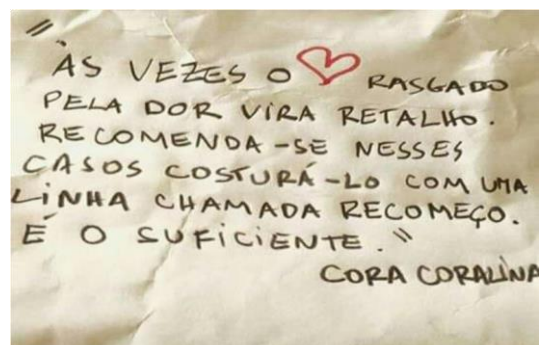 "ÀS VEZES O ❤ RASGADO
PELA DOR VIRA RETALHO.
RECOMENDA-SE NESSES
CASOS COSTURÁ-LO COM UMA
LINHA CHAMADA RECOMEÇO.
É O SUFICIENTE."
CORA CORALINA